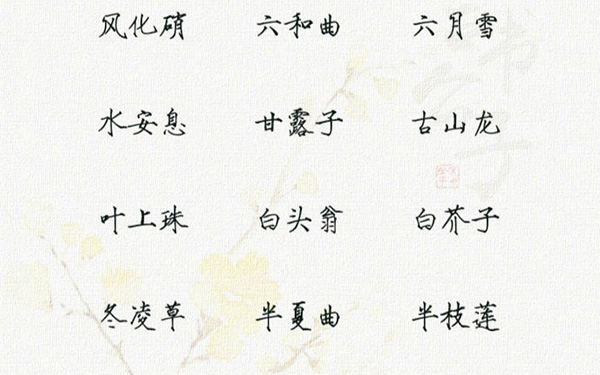 风化硝 六和曲 六月雪
水安息 甘露子 古山龙
叶上珠 白头翁 白芥子
冬凌草 半夏曲 半枝莲